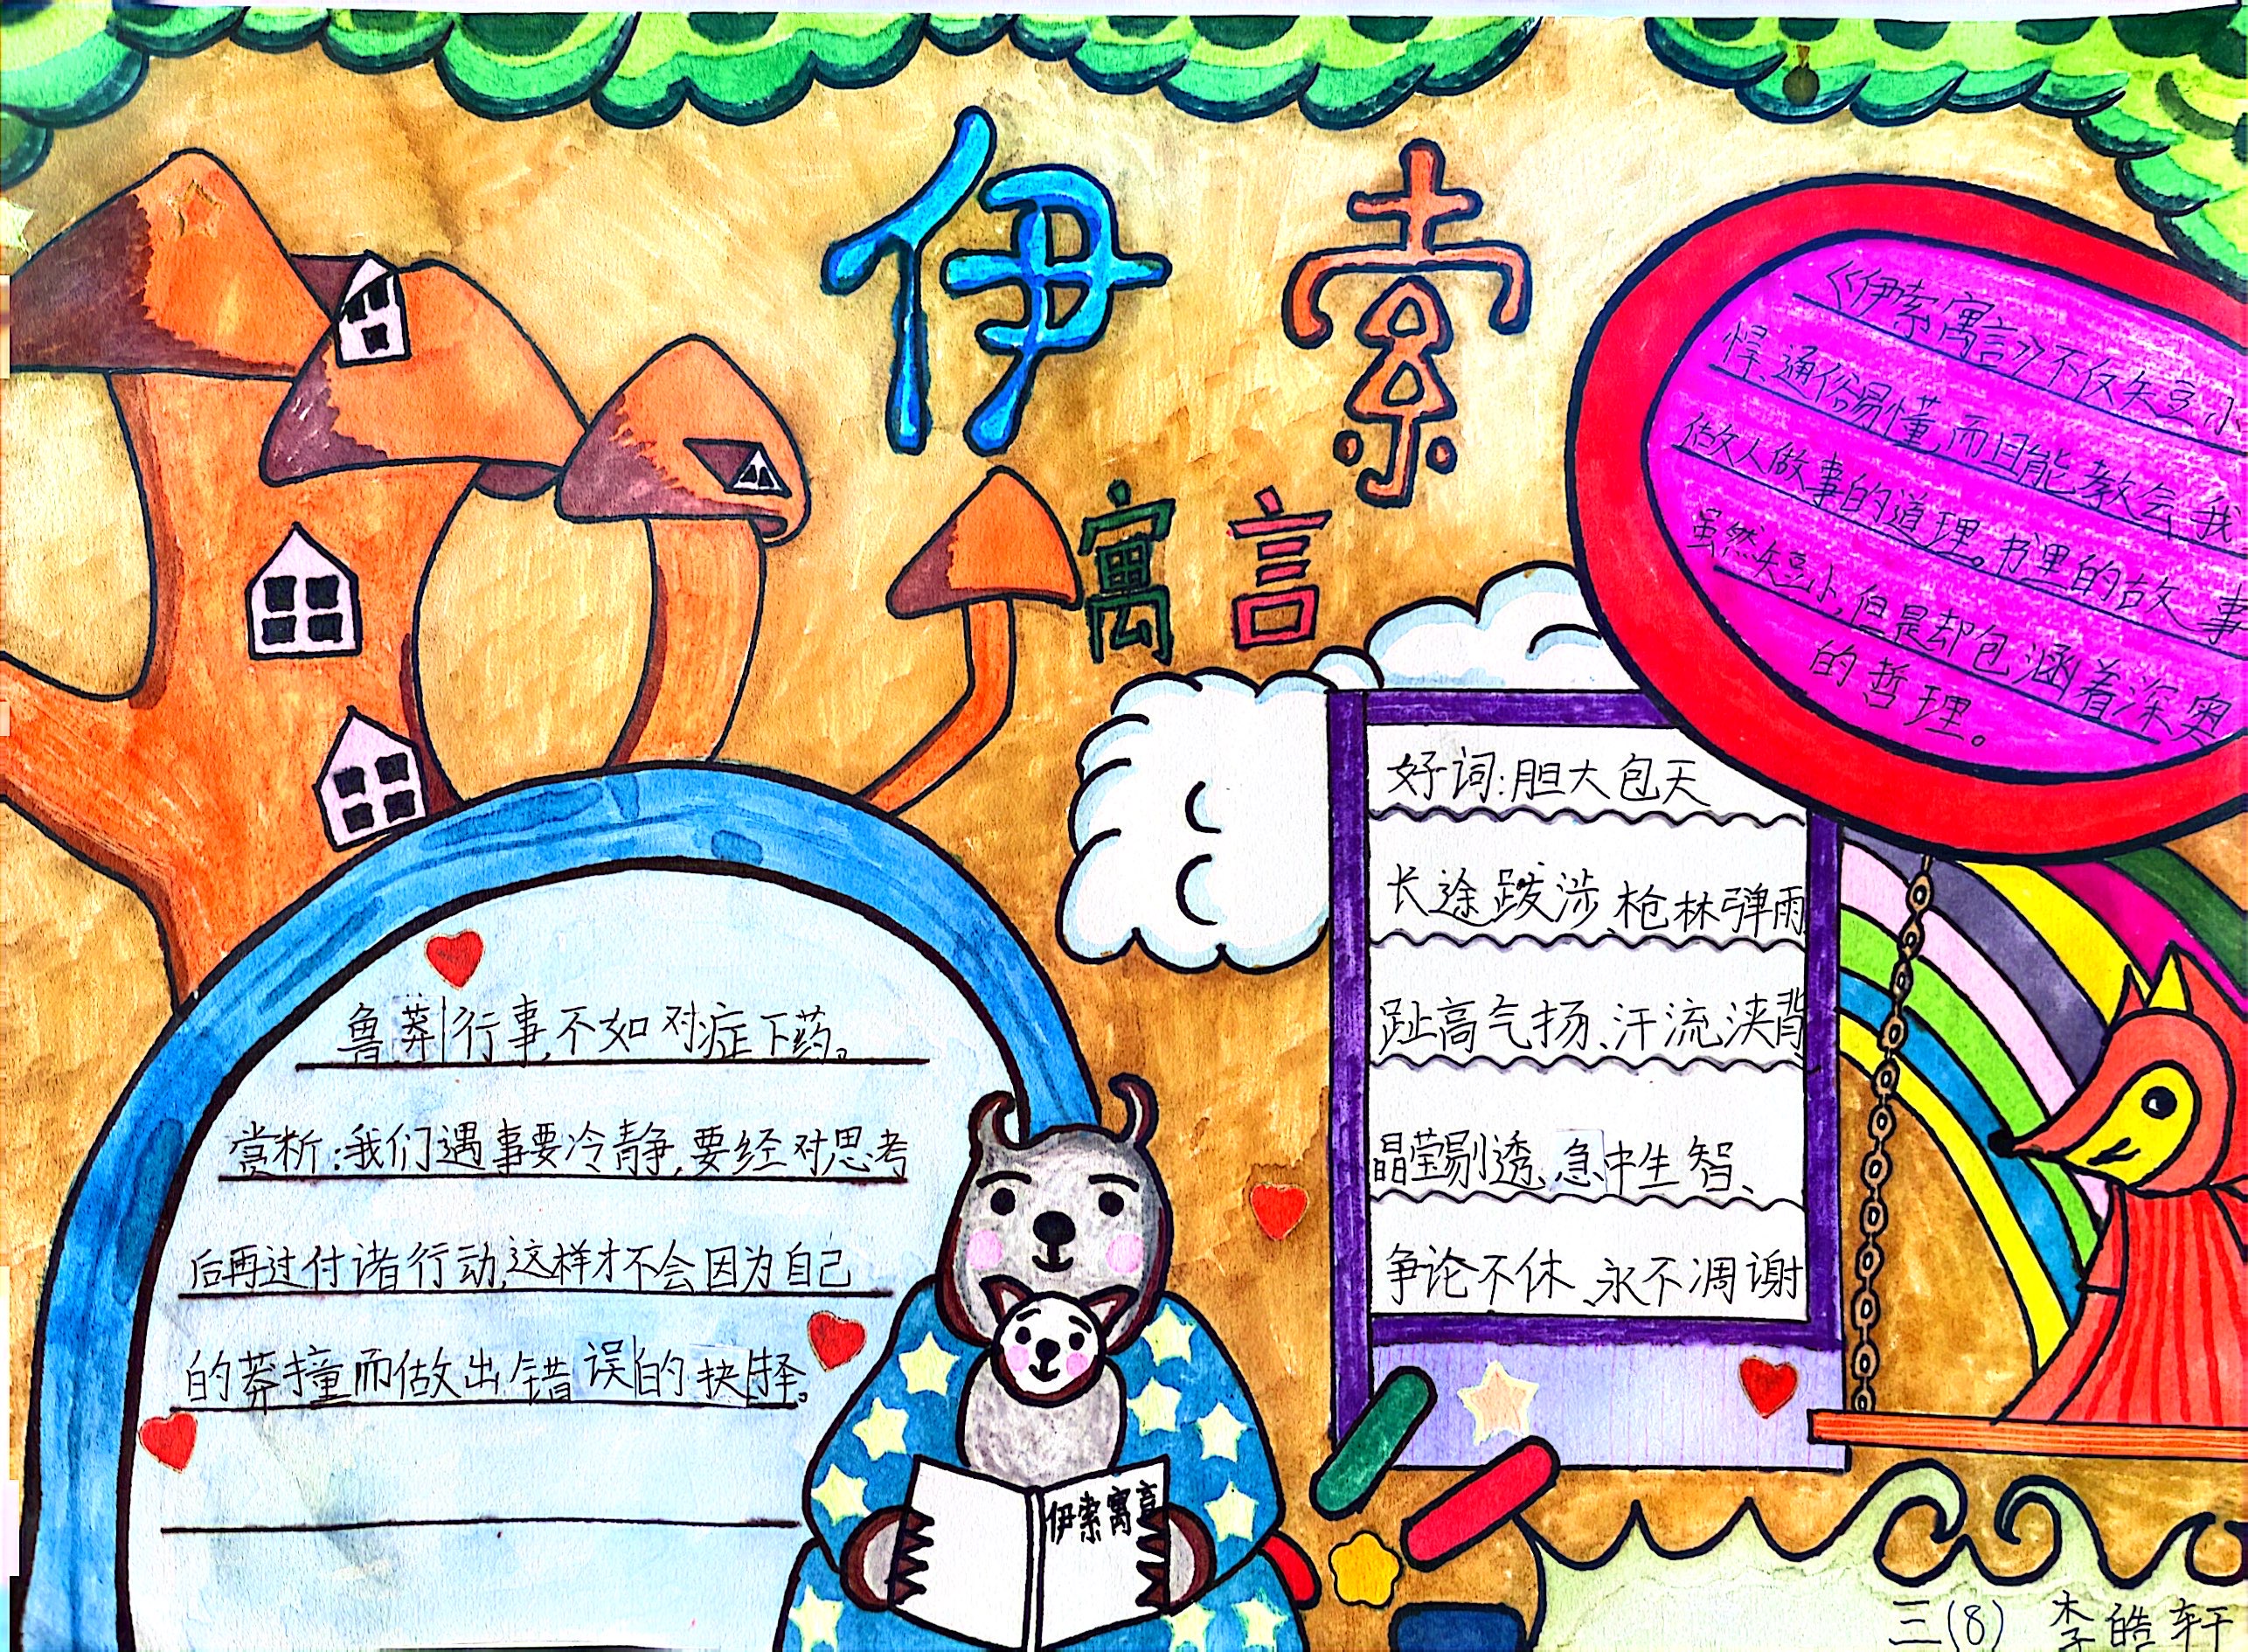 伊索
寓言
《伊索寓言》不仅短小
悍、通俗易懂,而且能教会我
做人做事的道理。书里的故事
虽然短小,但是却包涵着深奥
的哲理。
好词:胆大包天
长途跋涉、枪林弹雨
趾高气扬、汗流浃背
晶莹剔透、急中生智、
争论不休、永不凋谢
鲁莽行事,不如对症下药。
赏析:我们遇事要冷静,要经对思考
后再过付诸行动,这样才不会因为自己
的莽撞而做出错误的抉择。
伊索寓言
三(8) 李皓轩